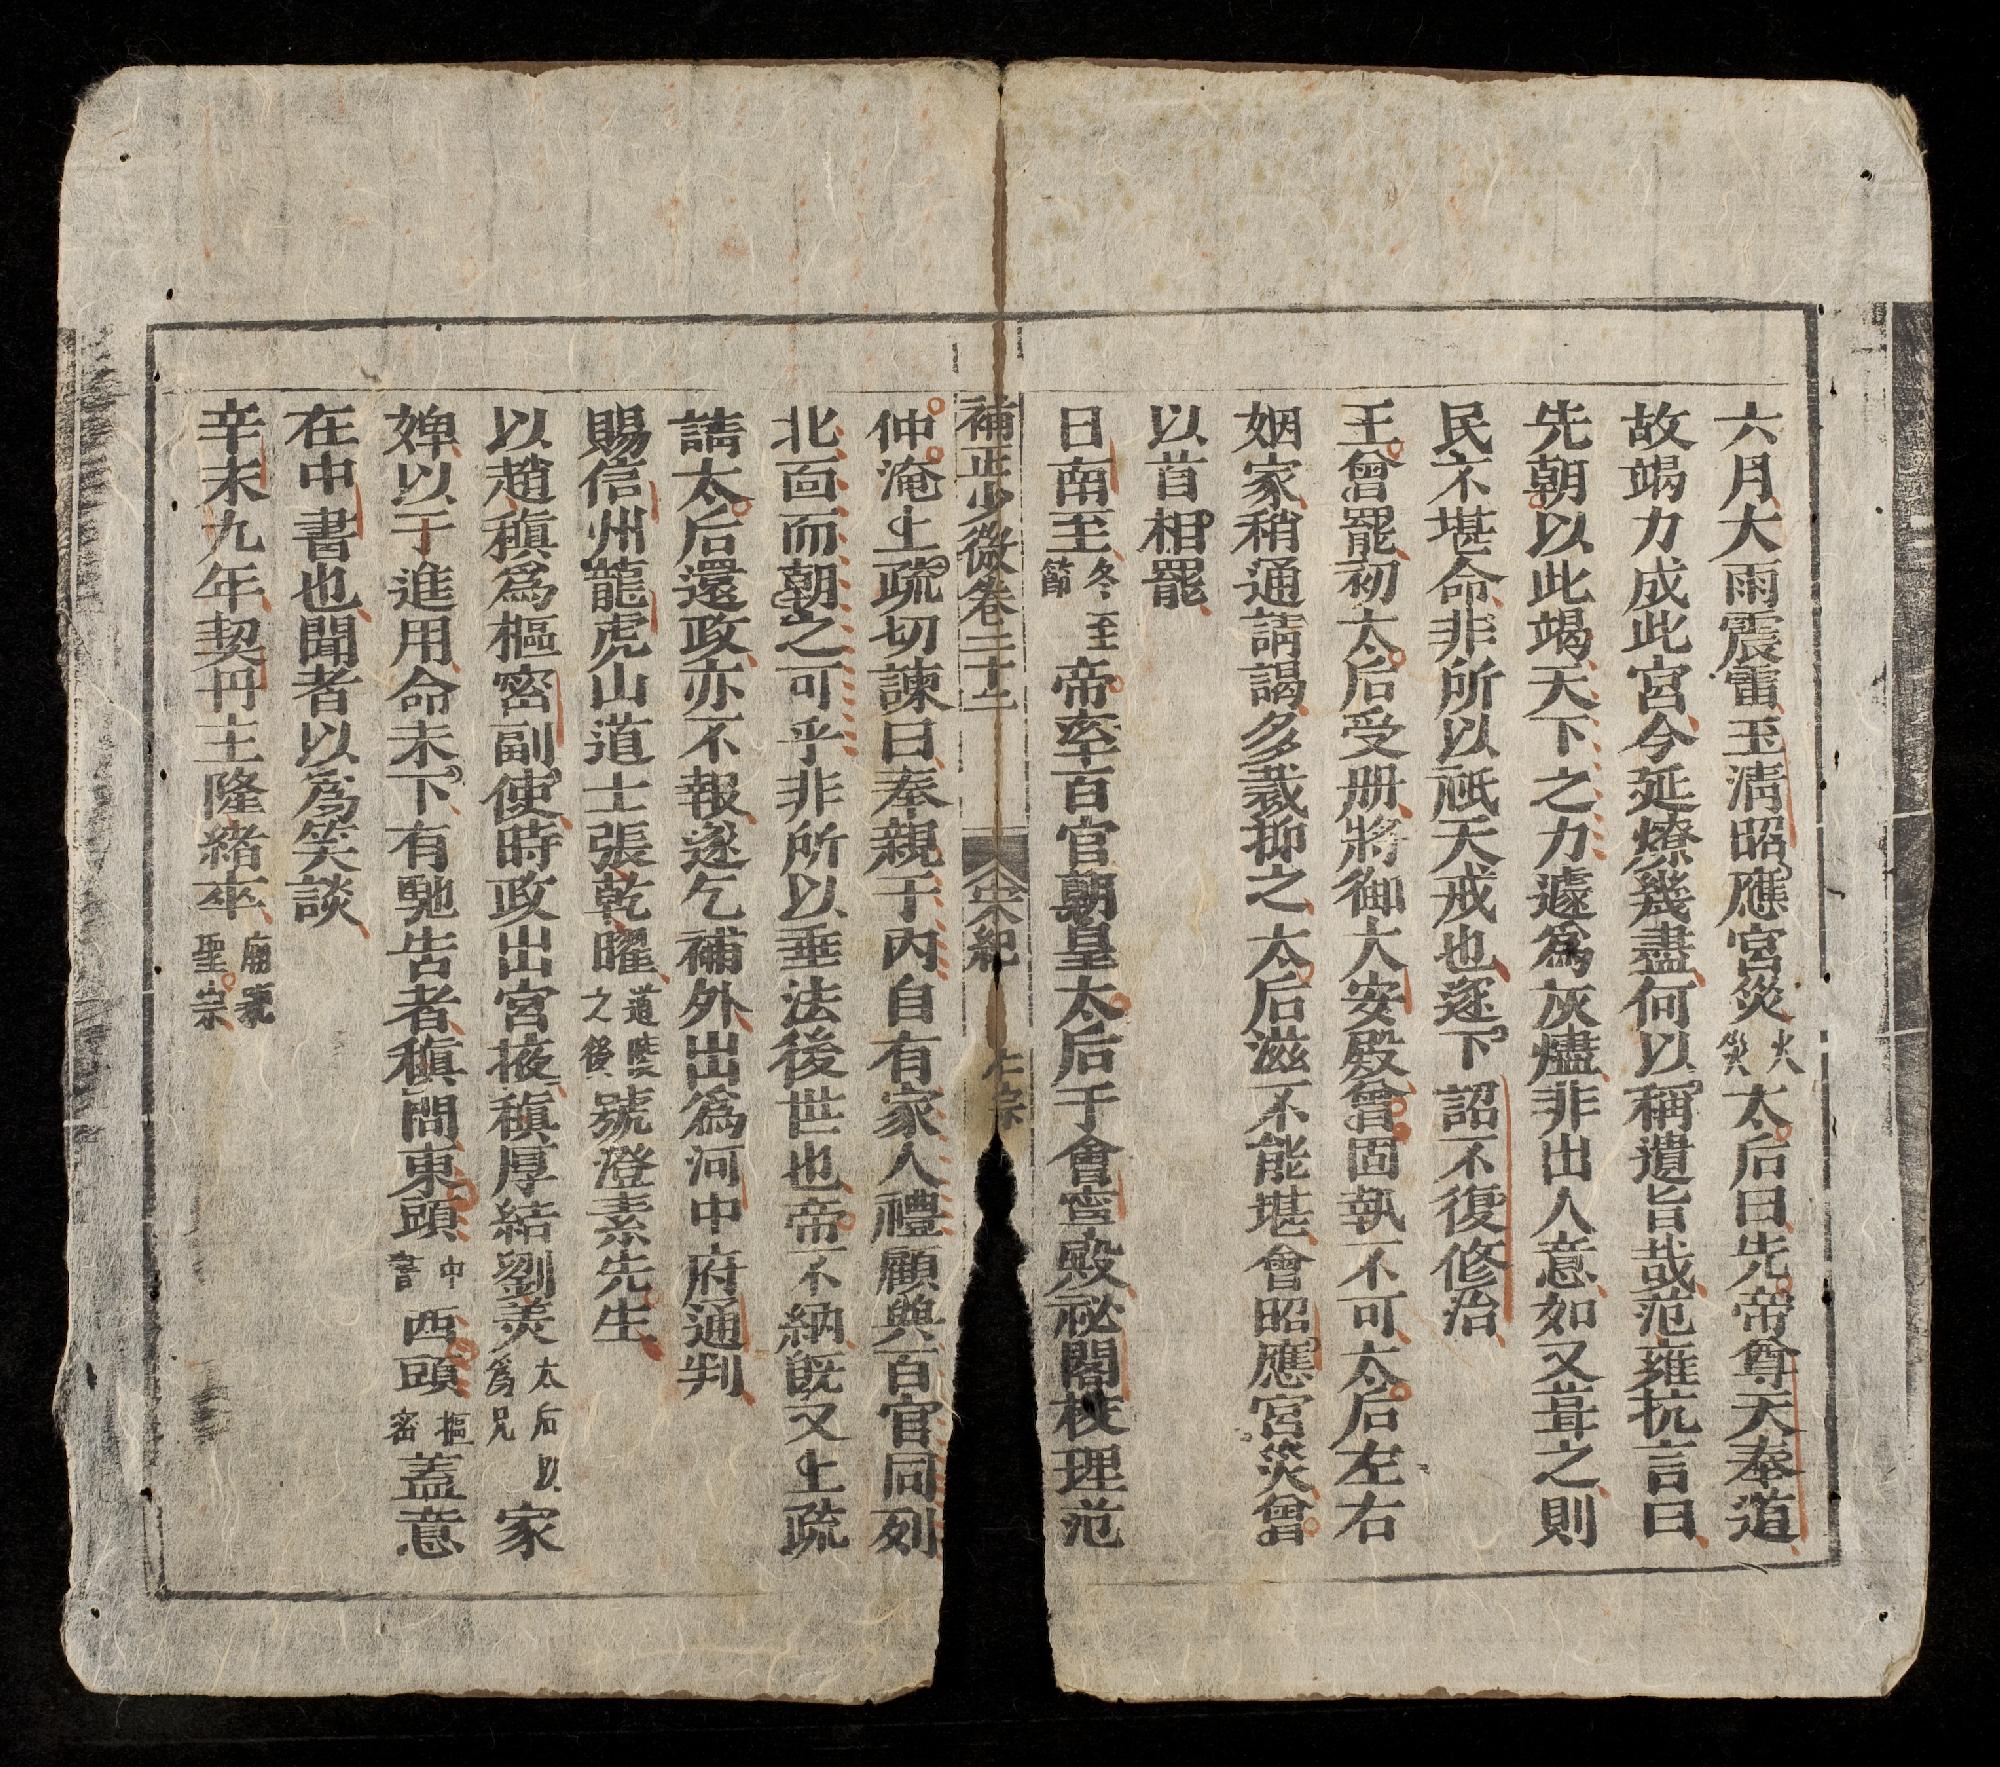 六月大雨震雷玉淸昭應宮災火災太后曰先帝尊天奉道
故竭力成此宮今延燎幾盡何以稱遺旨哉范雍抗言曰
先朝以此竭天下之力遽爲灰燼非出人意如又葺之則
民不堪命非所以祗天戒也逐下詔不復修治
王曾罷初太后受册將御大安殿曾固執不可太后左右
姻家稍通請謁多裁抑之太后滋不能堪會昭應宮災曾
以首相罷
日南至冬至節帝率百官朝皇太后于會寜殿祕閣校理范
補正少微卷二十二 宋紀 仁宗
仲淹上疏切諫曰奉親于內自有家人禮顧與百官同列
北面而朝之可乎非所以垂法後世也帝不納旣又上疏
請太后還政亦不報逐乞補外出爲河中府通判
賜信州龍虎山道士張乾曜道陵之後號澄素先生
以趙稹爲樞密副使時政出宮掖稹厚結劉美太后以爲兄家
婢以于進用命未下有馳告者稹問東頭中書西頭樞密蓋意
在中書也聞者以爲笑談
辛未九年契丹主隆緒卒廟號聖宗